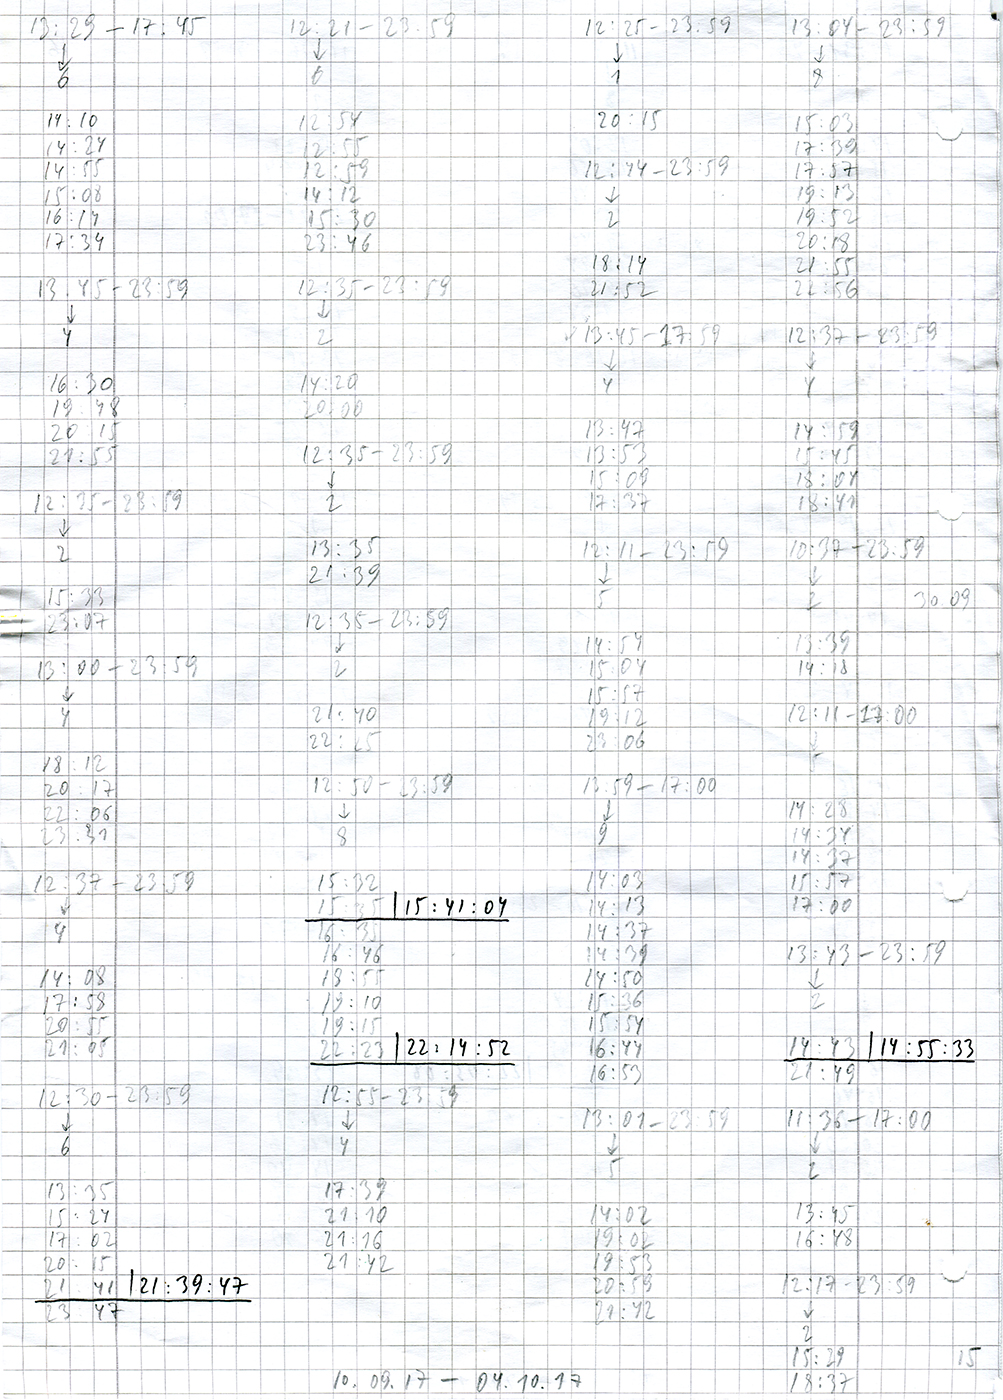 13:29 - 17:45
↓
6
14:10
14:24
14:55
15:08
16:14
17:34
13:45 - 23:59
↓
4
16:30
19:48
20:15
21:55
12:25 - 23:59
↓
2
15:33
23:07
13:00 - 23:59
↓
4
18:12
20:17
22:06
23:31
12:37 - 23:59
↓
4
14:08
17:58
20:55
21:05
12:30 - 23:59
↓
6
13:35
15:24
17:02
20:15
21:41 | 21:39:47
23:47
12:21 - 23:59
↓
6
12:54
12:55
12:59
14:12
15:30
23:46
12:35 - 23:59
↓
2
14:20
20:00
12:35 - 23:59
↓
2
13:35
21:39
12:35 - 23:59
↓
2
21:40
12:50 - 23:59
↓
8
15:32
15:35 | 15:41:04
16:35
16:46
18:55
19:10
19:15
22:23 | 22:14:52
12:55 - 23:59
↓
4
17:39
21:10
21:16
21:42
12:25 - 23:59
↓
1
20:15
12:44 - 23:59
↓
2
18:14
21:52
13:45 - 17:59
↓
4
13:47
13:53
15:09
17:37
12:11 - 23:59
↓
5
14:54
15:04
15:57
19:12
23:06
13:59 - 17:00
↓
9
14:03
14:13
14:37
14:39
14:50
15:36
15:54
16:44
16:53
13:01 - 23:59
↓
5
14:02
19:02
19:53
20:59
21:42
13:04 - 23:59
↓
8
15:03
17:39
17:57
19:13
19:52
20:18
21:55
21:56
12:37 - 23:59
↓
4
14:59
15:45
18:04
18:41
10:37 - 23:59
↓
2 30.09
13:39
14:18
12:11 - 17:00
↓
14:28
14:34
14:37
15:57
17:00
13:43 - 23:59
↓
2
14:43 | 14:55:33
21:49
11:36 - 17:00
↓
2
13:45
16:48
12:17 - 23:59
↓
2
15:29 15
18:37
10.09.17 - 04.10.17